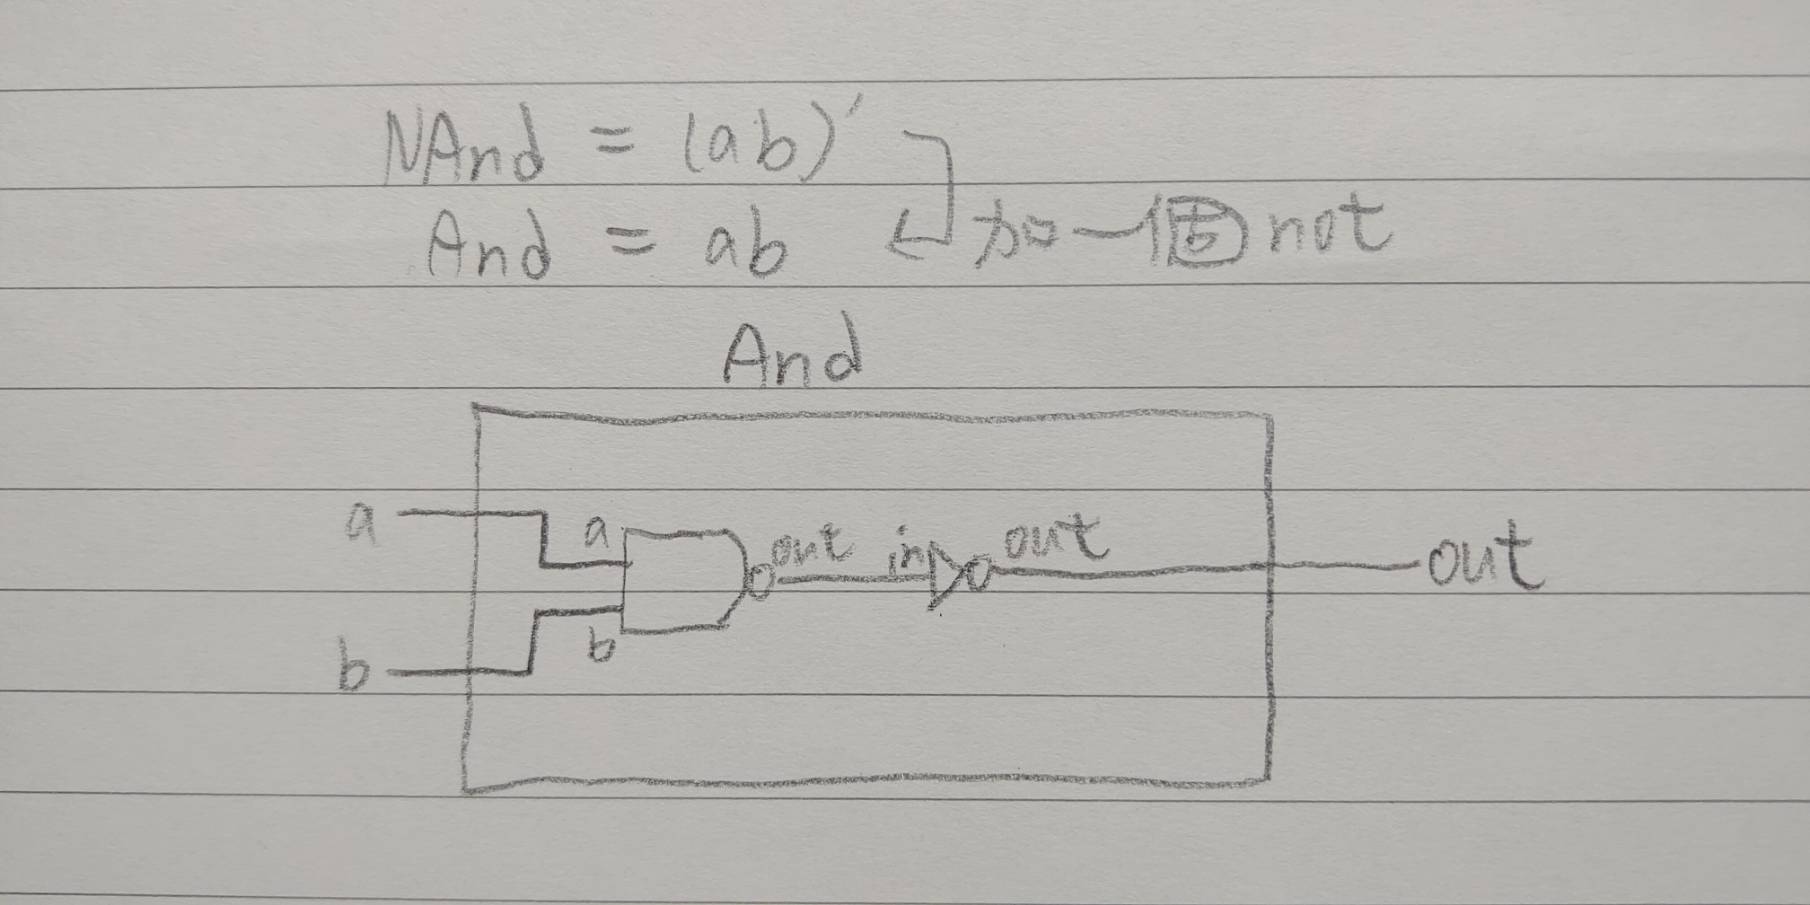 NAnd = (ab)'
And = ab
加一個not
And
a
a
out
in
out
out
b
b